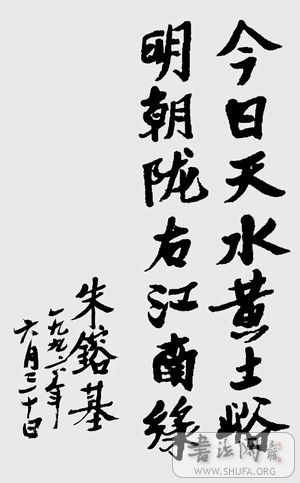 今日天水黄土峪
明朝陇右江南
朱鎔基
一九九六年
六月三十日
书法网
WWW.SHUFA.ORG